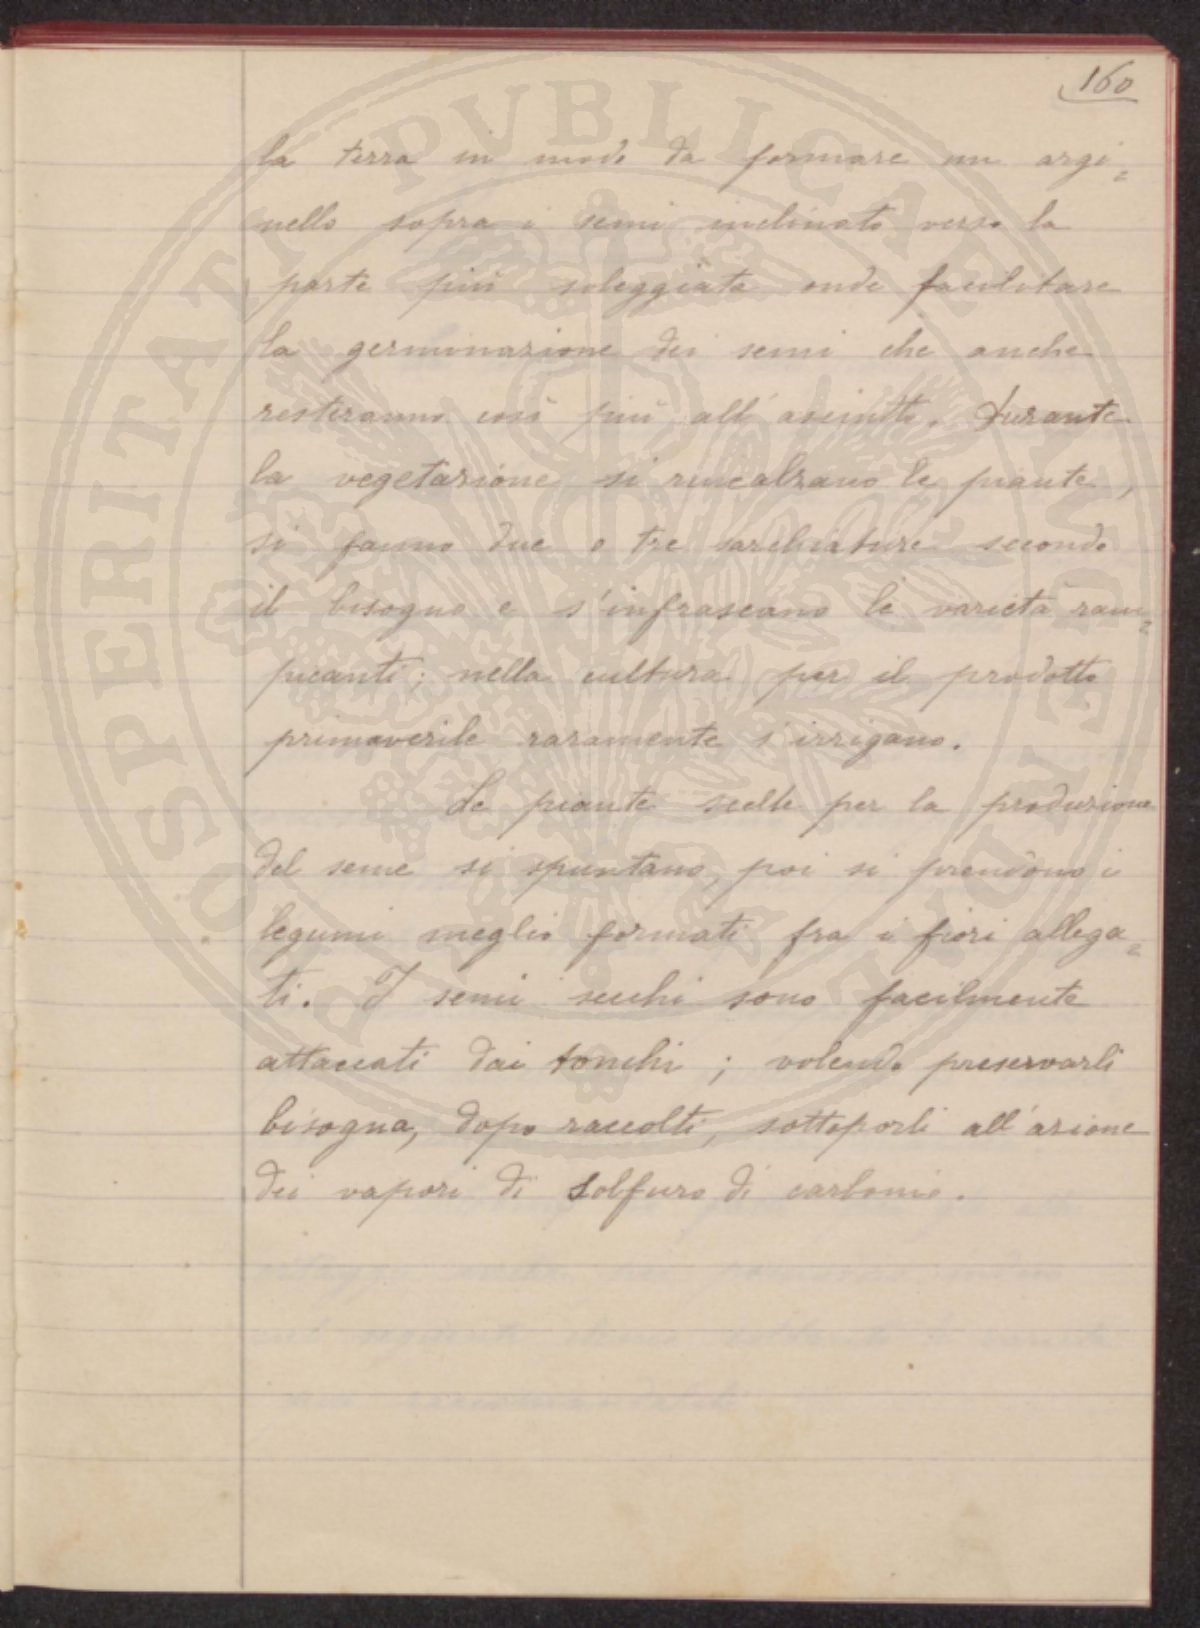 160
la terra in modo da formare un argi=
nello sopra i semi inclinato verso la
parte più soleggiata onde facilitare
la germinazione dei semi che anche
resteranno così più all'asciutto. Durante
la vegetazione si rincalzano le piante,
si fanno due o tre sarchiature secondo
il bisogno e s'infrascano le varietà ram=
picanti; nella cultura per il prodotto
primaverile raramente s'irrigano.
Le piante scelte per la produzione
del seme si spuntano, poi si prendono i
legumi meglio formati fra i fiori allega=
ti. I semi secchi sono facilmente
attaccati dai tonchi; volendo preservarli
bisogna, dopo raccolti, sottoporli all'azione
dei vapori di solfuro di carbonio.
PROSPERITATI PUBLICAE AUGENDAE